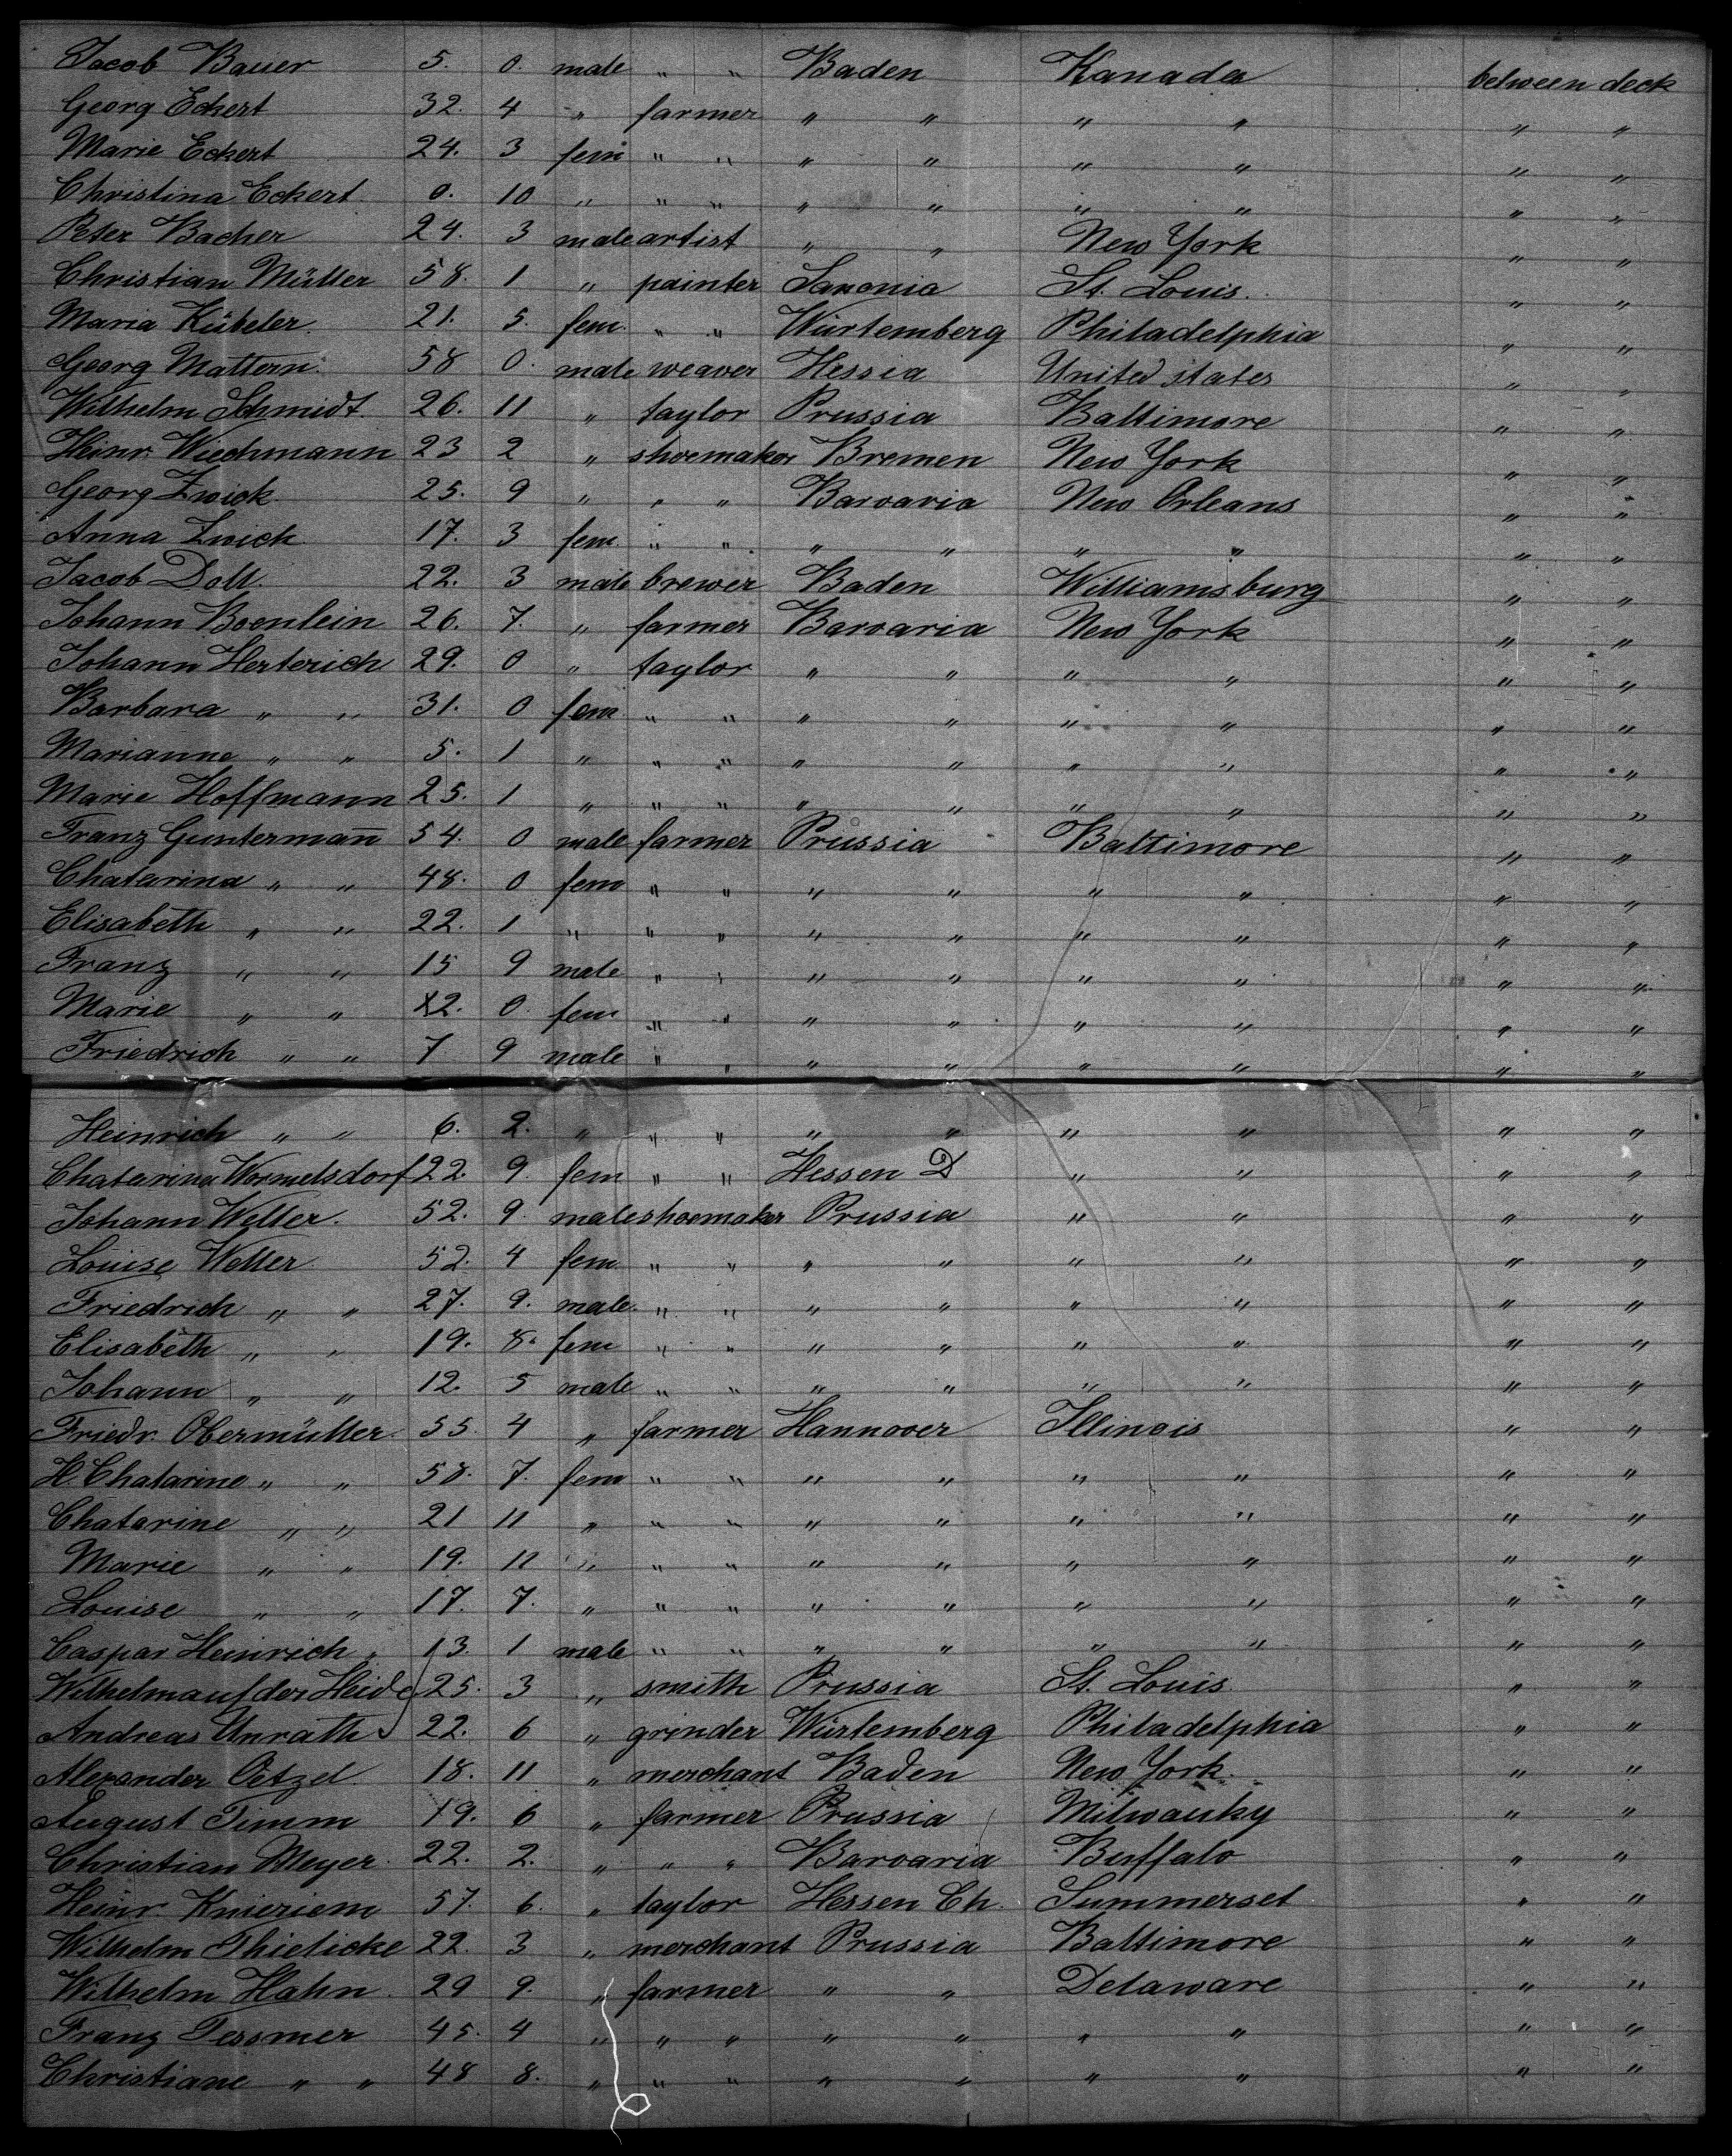 Jacob Bauer 5. 0. male " " Baden Kanada between deck
Georg Eckert 32. 4 " farmer " " " " " "
Marie Eckert 24. 3 fem " " " " " " " "
Christina Eckert 0. 10 " " " " " " " " "
Peter Bacher 24. 3 male artist " " New York " "
Christian Müller 58. 1 " painter Saxonia St. Louis. " "
Maria Kübeler 21. 5. fem. " " Würtemberg Philadelphia " "
Georg Mattern 58 0. male weaver Hessia United states " "
Wilhelm Schmidt 26. 11 " taylor Prussia Baltimore " "
Heinr. Wiechmann 23 2 " shoemaker Bremen New York " "
Georg Zwick 25. 9 " " " Barvaria New Orleans " "
Anna Zwick 17. 3 fem. " " " " " " " "
Jacob Doll. 22. 3 male brewer Baden Williamsburg " "
Johann Boenlein 26. 7. " farmer Barvaria New York " "
Johann Herterich 29. 0 " taylor " " " " " "
Barbara " " 31. 0 fem. " " " " " " " "
Marianne " " 5. 1 " " " " " " " " "
Marie Hoffmann 25. 1 " " " " " " " " "
Franz Guntermañ 54. 0 male farmer Prussia Baltimore " "
Chatarina " " 48. 0 fem " " " " " " " "
Elisabeth " " 22. 1 " " " " " " " " "
Franz " " 15 9 male " " " " " " " "
Marie " " 12. 0. fem " " " " " " " "
Friedrich " " 7 9 male " " " " " " " "
Heinrich " " 6. 2. " " " " " " " " "
Chatarina Wormelsdorf 22. 9. fem " " Hessen D " " " "
Johann Weller. 52. 9. male shoemaker Prussia " " " "
Louise Weller 52. 4 fem. " " " " " " " "
Friedrich " " 27. 9. male. " " " " " " " "
Elisabeth " " 19. 8. fem " " " " " " " "
Johann " " 12. 5 male " " " " " " " "
Friedr. Obermüller. 55. 4 " farmer Hannover Illinois " "
H. Chatarine " " 58. 7. fem " " " " " " " "
Chatarine " " 21 11 " " " " " " " " "
Marie " " 19. 11 " " " " " " " " "
Louise " " 17. 7. " " " " " " " " "
Caspar Heinrich " 13. 1 male " " " " " " " "
Wilhelm auf der Heide 25. 3 " smith Prussia St. Louis " "
Andreas Unrath 22. 6 " grinder Würtemberg Philadelphia " "
Alexander Oetzel 18. 11 " merchant Baden New York. " "
August Timm 19. 6 " farmer Prussia Milwauky " "
Christian Meyer. 22. 2. " " " Barvaria Buffalo " "
Heinr. Knieriem 57. 6. " taylor Hessen Ch. Summerset " "
Wilhelm Thielicke 22. 3 " merchant Prussia Baltimore " "
Wilhelm Hahn. 29 9. " farmer " " Delaware " "
Franz Tessmer 45. 4 " " " " " " " " "
Christiane " " 48 8. " " " " " " " " "